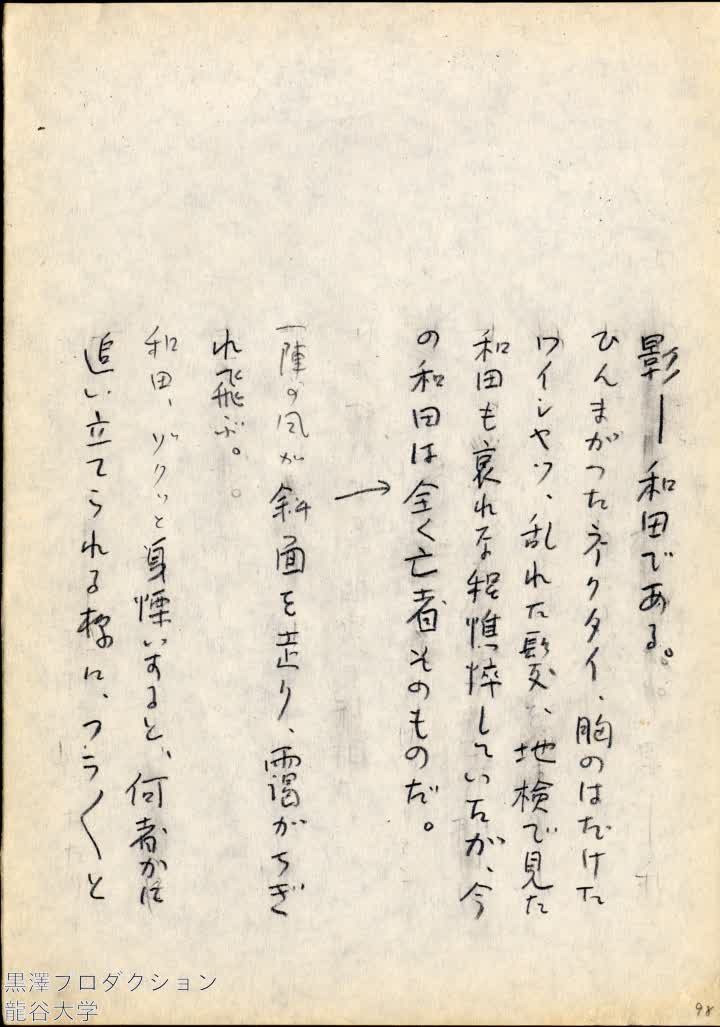 影―和田である。
ひんまがったネクタイ、胸のはだけた
ワイシャツ、乱れた髪、地検で見た
和田も哀れな程憔悴していたが、今
の和田は全く亡者そのものだ。
→
一陣の風が斜面を走り、靄がちぎ
れ飛ぶ。
和田、ゾクッと身慄いすると、何者かに
追い立てられる様に、フラ〱と
黒澤プロダクション
龍谷大学
98